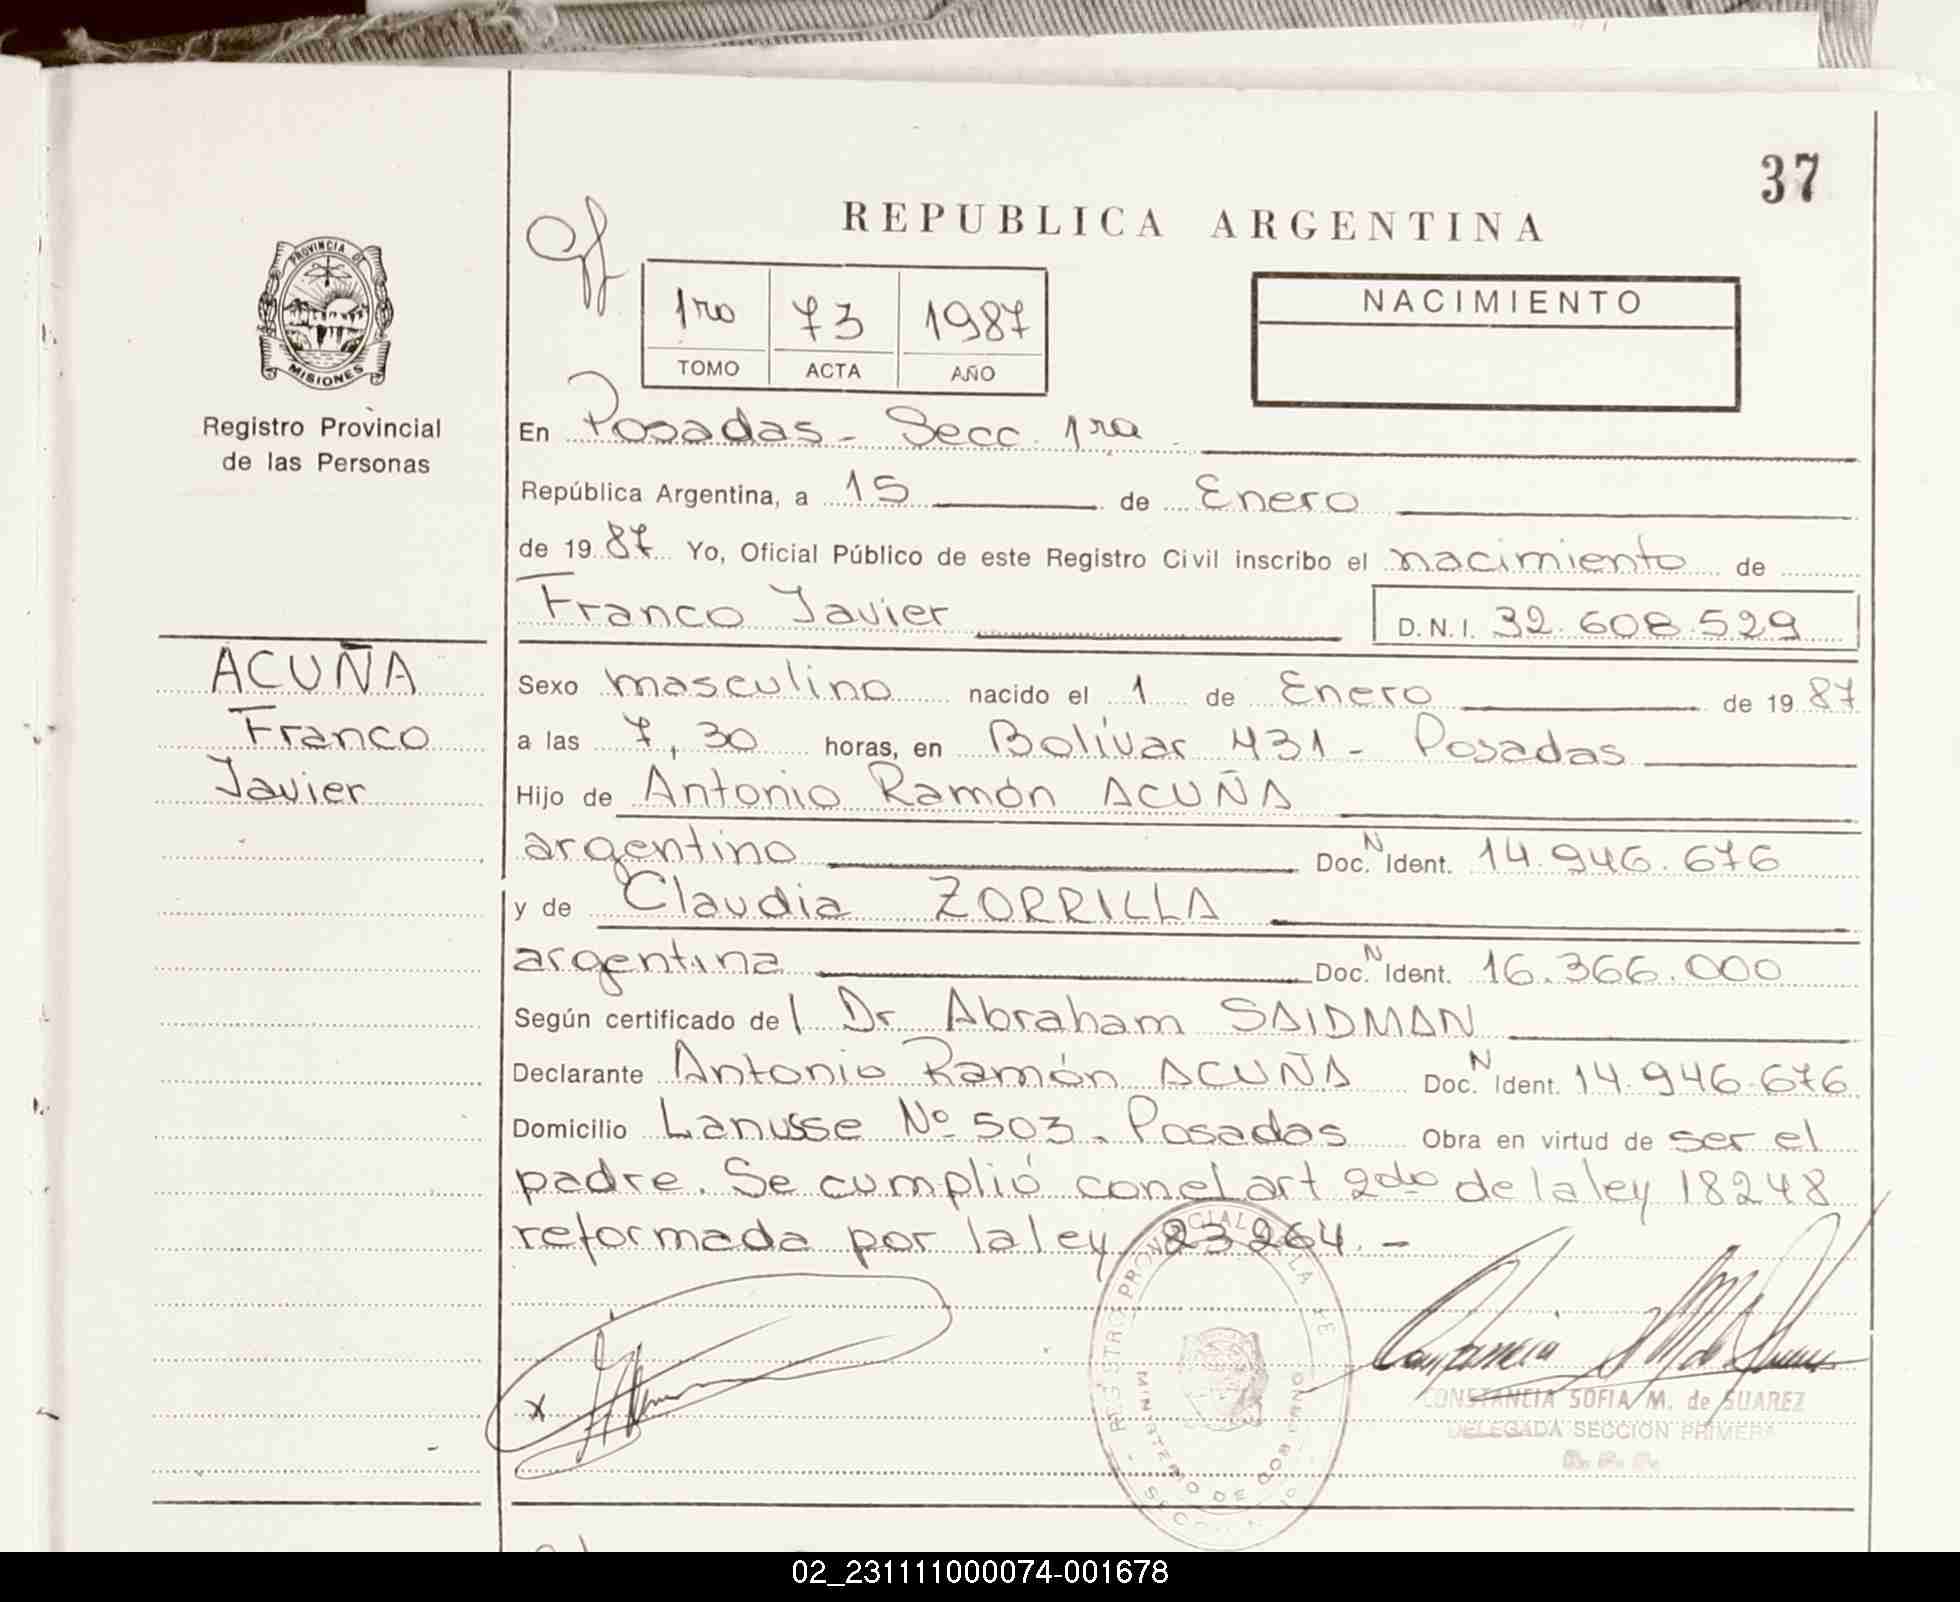 37
REPUBLICA ARGENTINA
PROVINCIA DE
MISIONES
1ro 73 1987
TOMO ACTA AÑO
NACIMIENTO
Registro Provincial
de las Personas
En Posadas - Secc. 1ra
República Argentina, a 15 de Enero
de 1987 Yo, Oficial Público de este Registro Civil inscribo el nacimiento de
Franco Javier D.N.I. 32.608.529
ACUÑA
Franco
Javier
Sexo masculino nacido el 1 de Enero de 1987
a las 7,30 horas, en Bolívar 431 - Posadas
Hijo de Antonio Ramón ACUÑA
argentino Doc. N Ident. 14.946.676
y de Claudia ZORRILLA
argentina Doc. N Ident. 16.366.000
Según certificado del Dr Abraham SAIDMAN
Declarante Antonio Ramón ACUÑA Doc. N Ident. 14.946.676
Domicilio Lanusse Nº 503 - Posadas Obra en virtud de ser el
padre. Se cumplió con el art 2do de la ley 18248
reformada por la ley 23264.-
REGISTRO PROVINCIAL DE LA
MINISTERIO DE GOBIERNO
CONSTANCIA SOFIA M. de SUAREZ
DELEGADA SECCION PRIMERA
02_231111000074-001678